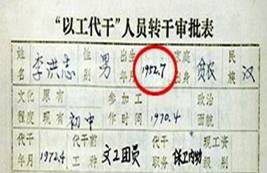 “以工代干”人员转干审批表
姓名 李洪志 性别 男 出生年月 1952.7 家庭出身 贫农 民族 汉
文化程度 原有 现有 初中 参加工作时间 1970.4 政治面貌
代干年月 1972.4 代干前工种 文工团员 代干职务 现工资级别